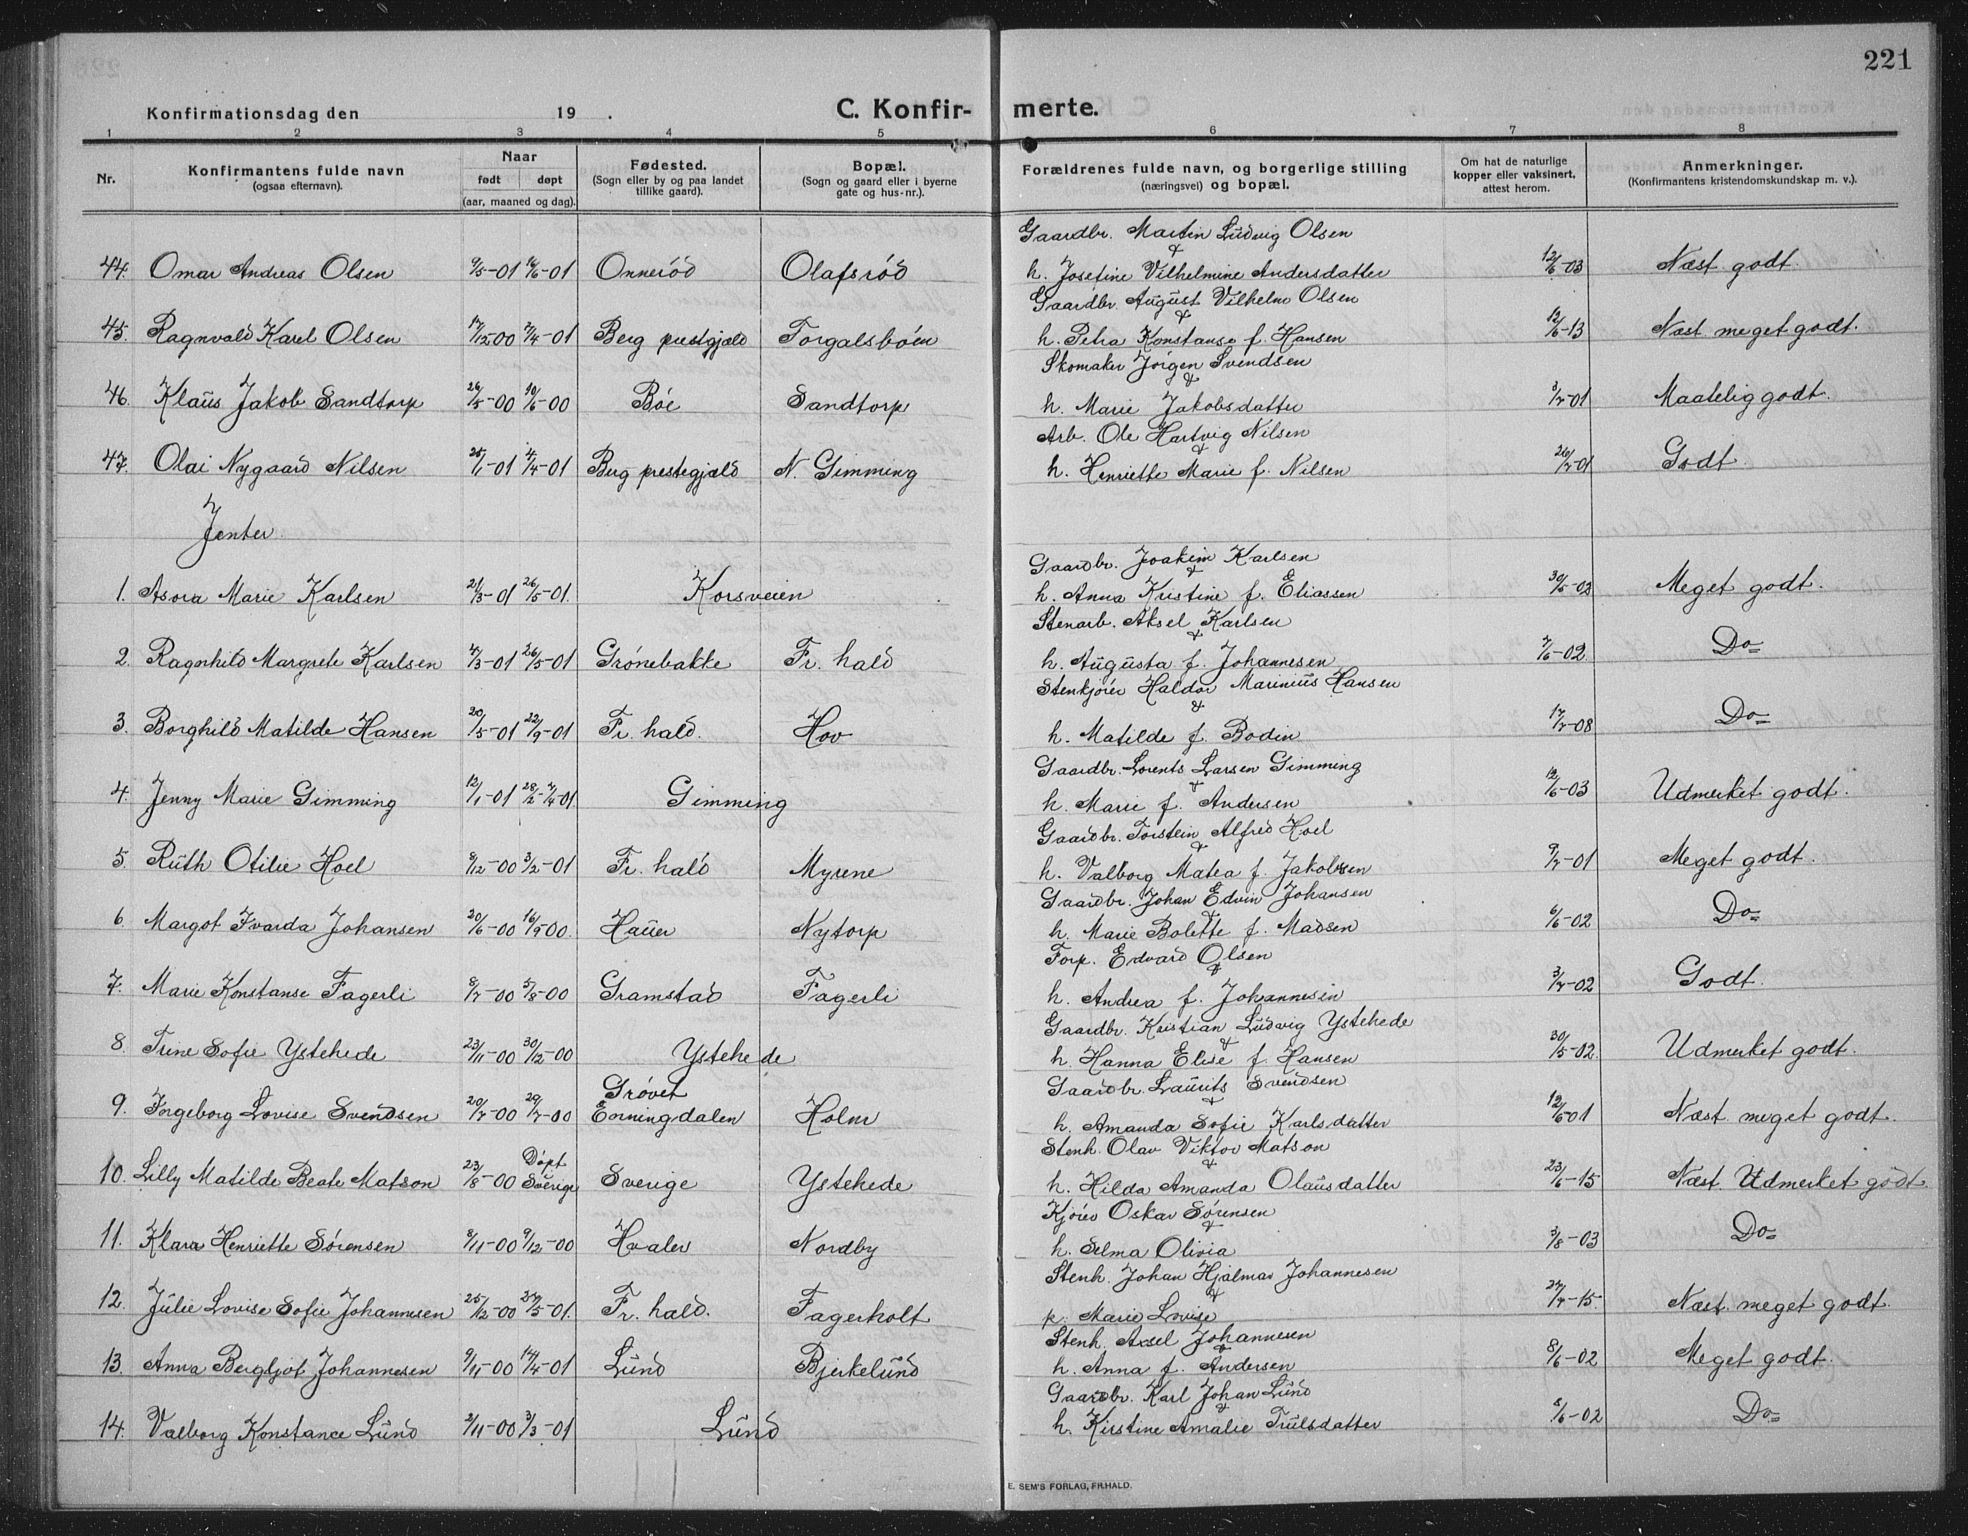 221
Konfirmationsdag den 19 . C. Konfir- merte.
1 2 3 4 5 6 7 8
Nr. Konfirmantens fulde navn (ogsaa efternavn). Naar født døpt (aar, maaned og dag). Fødested. (Sogn eller by og paa landet tillike gaard). Bopæl. (Sogn og gaard eller i byerne gate og hus-nr.). Forældrenes fulde navn, og borgerlige stilling (næringsvei) og bopæl. Om hat de naturlige kopper eller vaksinert, attest herom. Anmerkninger. (Konfirmantens kristendomskundskap m. v.).
Gaardbr. Martin Ludvig Olsen
&
44. Omar Andreas Olsen 9/5-01 16/6-01 Onnerød Olafsrød h. Josefine Vilhelmine Andersdatter 12/6-03 Næst godt.
Gaardbr. August Vilhelm Olsen
&
45. Ragnvald Karel Olsen 17/12 00 7/4-01 Berg prestgjæld Torgalsbøen h. Petra Konstanse f. Hansen 12/6-13 Næst meget godt.
Skomaker Jørgen Svendsen
&
46. Klaus Jakob Sandtorp 26/5-00 10/6-00 Bøe Sandtorp h. Marie Jakobsdatter 3/7-01 Maatelig godt.
Arb. Ole Hartvig Nilsen
&
47. Olai Nygaard Nilsen 25/1-01 /4-01 Berg prestegjæld N. Gimming h. Henriette Marie f. Nilsen 26/7-01 Godt.
Jenter.
Gaardbr. Joakim Karlsen
&
1. Asora Marie Karlsen 21/3-01 26/5-01. Korsveien h. Anna Kristine f. Eliassen 30/5-02 Meget godt.
Stenarb. Aksel Karlsen
&
2. Ragnhild Margrete Karlsen /3-01 26/5-01 Grønebakke Fr. hald h. Augusta f. Johannesen 7/6-02. Do=
Stenkjører Haldor Marinius Hansen
&
3. Borghild Matilde Hansen 20/5-01 22/9-01 Fr. hald. Hov h. Matilde f. Bodin 17/7-08 Do=
Gaardbr. Lorents Larsen Gimming
&
4. Jenny Marie Gimming 12/1-01 28/2-7/4-01 Gimming h. Marie f. Andersen 12/6-03 Udmerket godt.
Gaardbr. Torstein Alfred Hoel
&
5. Ruth Otilie Hoel 9/12-00 3/2-01 Fr. hald Myrene h. Valborg Matea f. Jakobsen 9/7-01 Meget godt.
Gaardbr. Johan Edvin Johansen
&
6. Margot Ivarda Johansen 20/6-00 16/9 00. Hauer Nytorp h. Marie Bolette f. Madsen 6/6-02 Do=
Forp. Edvard Olsen
&
7. Marie Konstanse Fagerli 8/7-00 5/8-00 Gramstad Fagerli h. Andrea f. Johannesen 3/7-02 Godt.
Gaardbr. Kristian Ludvig Ystehede
&
8. Trine Sofie Ystehede 23/11-00 30/12-00 Ystehede h. Hanna Elise f. Hansen 30/5-02. Udmerket godt.
Gaardbr. Laurits Svendsen
Grøvet
9. Ingeborg Lovise Svendsen 20/7-00 29/7-00 Enningdalen Holm h. Amanda Sofie Karlsdatter 12/6 01 Næst meget godt.
Stenh. Olav Viktor Matson
&
Døpt
10. Lilly Matilde Beate Matson 23/8-00 Sverige Sverige Ystehede h. Hilda Amanda Olausdatter 23/6-15 Næst. Udmerket godt
Kjører Oskar Sørensen
&
11. Klara Henriette Sørensen 8/11-00 9/12-00 Hvaler Nordby h. Selma Olivia 3/8-03 Do=
Stenh. Johan Hjalmar Johannesen
&
12. Julie Lovise Sofie Johannesen 25/12-00 27/5-01. Fr. hald. Fagerholt p. Marie Lovise 27/7-15. Næst meget godt.
Stenh. Axel Johannesen
&
13. Anna Bergljot Johannesen 9/11-00 14/4-01 Lund Bjerkelund h. Anna f. Andersen 8/6-02 Meget godt.
Gaardbr. Karl Johan Lund
&
14. Valborg Konstance Lund 2/11-00 3/3-01 Lund h. Kirstine Amalie Trulsdatter /6-02 Do=
E. SEM'S FORLAG, FR.HALD.